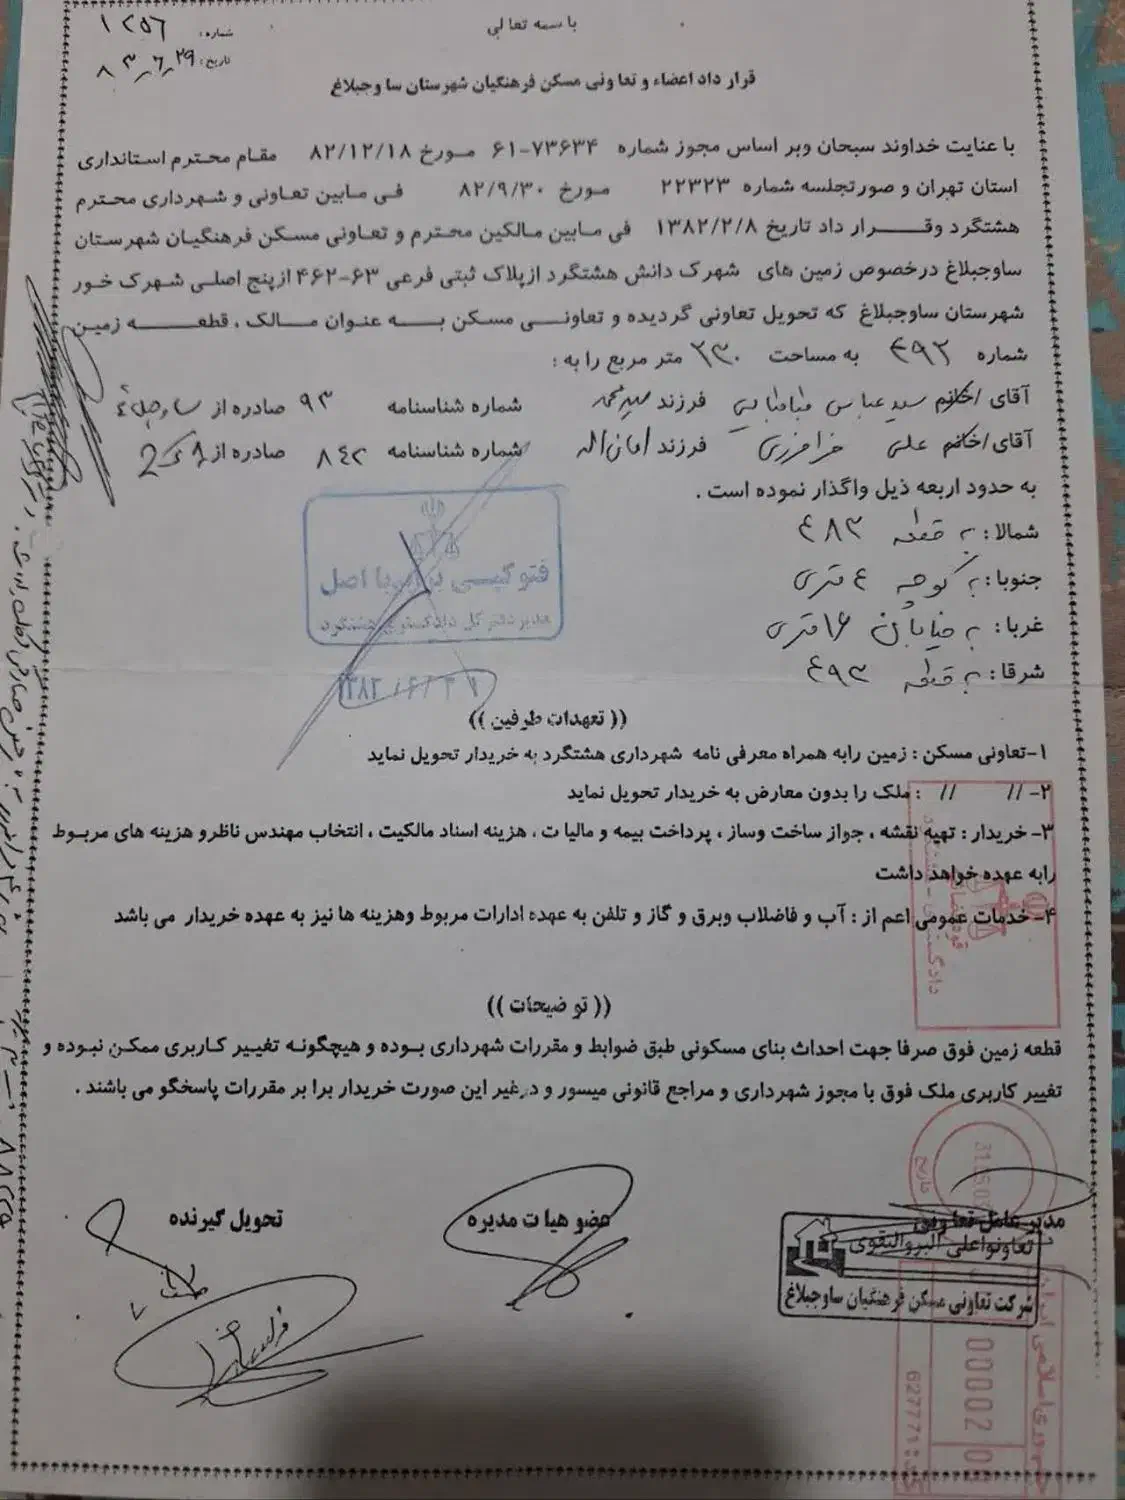 با سمه تعالی
شماره: ۱۲۵۶
تاریخ: ۸۳/۶/۲۹
قرار داد اعضاء و تعا ونی مسکن فرهنگیان شهرستان سا وجبلاغ
با عنایت خداوند سبحان وبر اساس مجوز شماره ۷۳۶۳۴-۶۱ مـورخ ۸۲/۱۲/۱۸ مقـام محـترم اسـتانداری
استان تهران و صورتجلسه شماره ۲۲۳۲۳ مـورخ ۸۲/۹/۳۰ فـی مـابین تعـاونی و شـهرداری محـترم
هشتگرد وقـــرار داد تاریخ ۱۳۸۲/۲/۸ فی مـابین مـالکین محـترم و تعـاونی مسـکن فرهنگیـان شهرسـتان
ساوجبلاغ درخصوص زمین های شهرک دانش هشتگرد ازپلاک ثبتی فرعی ۶۳-۴۶۲ ازپنج اصلـی شـهرک خـور
شهرستان ساوجبلاغ که تحویل تعاونی گردیده و تعاونـــی مسکن بـــه عنوان مـــالک ، قطعـــه زمین
شماره ۴۹۲ به مساحت ۲۳۰ متر مربع را به :
آقای /خانم سید عباس طباطبایی فرزند سیدمحمد شماره شناسنامه ۹۳ صادره از ساوجبلاغ
آقای/خانم علی فرامرزی فرزند امان اله شماره شناسنامه ۸۴۲ صادره از
به حدود اربعه ذیل واگذار نموده است .
شمالا: به قطعه ۴۸۳
جنوبا: به کوچه ۴ متری
غربا: به خیابان ۱۶ متری
شرقا: به قطعه ۴۹۳
فتوکپی برابر با اصل
مدیر دفتر کل دادگستری هشتگرد
(( تعهدات طرفین ))
۱-تعاونی مسکن : زمین رابه همراه معرفی نامه شهرداری هشتگرد به خریدار تحویل نماید
۲- // // : ملک را بدون معارض به خریدار تحویل نماید
۳- خریدار : تهیه نقشه ، جواز ساخت وساز ، پرداخت بیمه و مالیا ت ، هزینه اسناد مالکیت ، انتخاب مهندس ناظرو هزینه های مربـوط
رابه عهده خواهد داشت
۴- خدمات عمومی اعم از : آب و فاضلاب وبرق و گاز و تلفن به عهده ادارات مربوط وهزینه ها نیز به عهده خریدار می باشد
(( تو ضیحات ))
قطعه زمین فوق صرفا جهت احداث بنای مسکونی طبق ضوابط و مقررات شهرداری بـوده و هیچگونـه تغیـیر کـاربری ممکـن نبـوده و
تغییر کاربری ملک فوق با مجوز شهرداری و مراجع قانونی میسور و درغیر این صورت خریدار برا بر مقررات پاسخگو می باشند .
مدیر عامل تعا ونی
عضو هیا ت مدیره
تحویل گیرنده
تعاونواعلی البروالتقوی
شرکت تعاونی مسکن فرهنگیان ساوجبلاغ